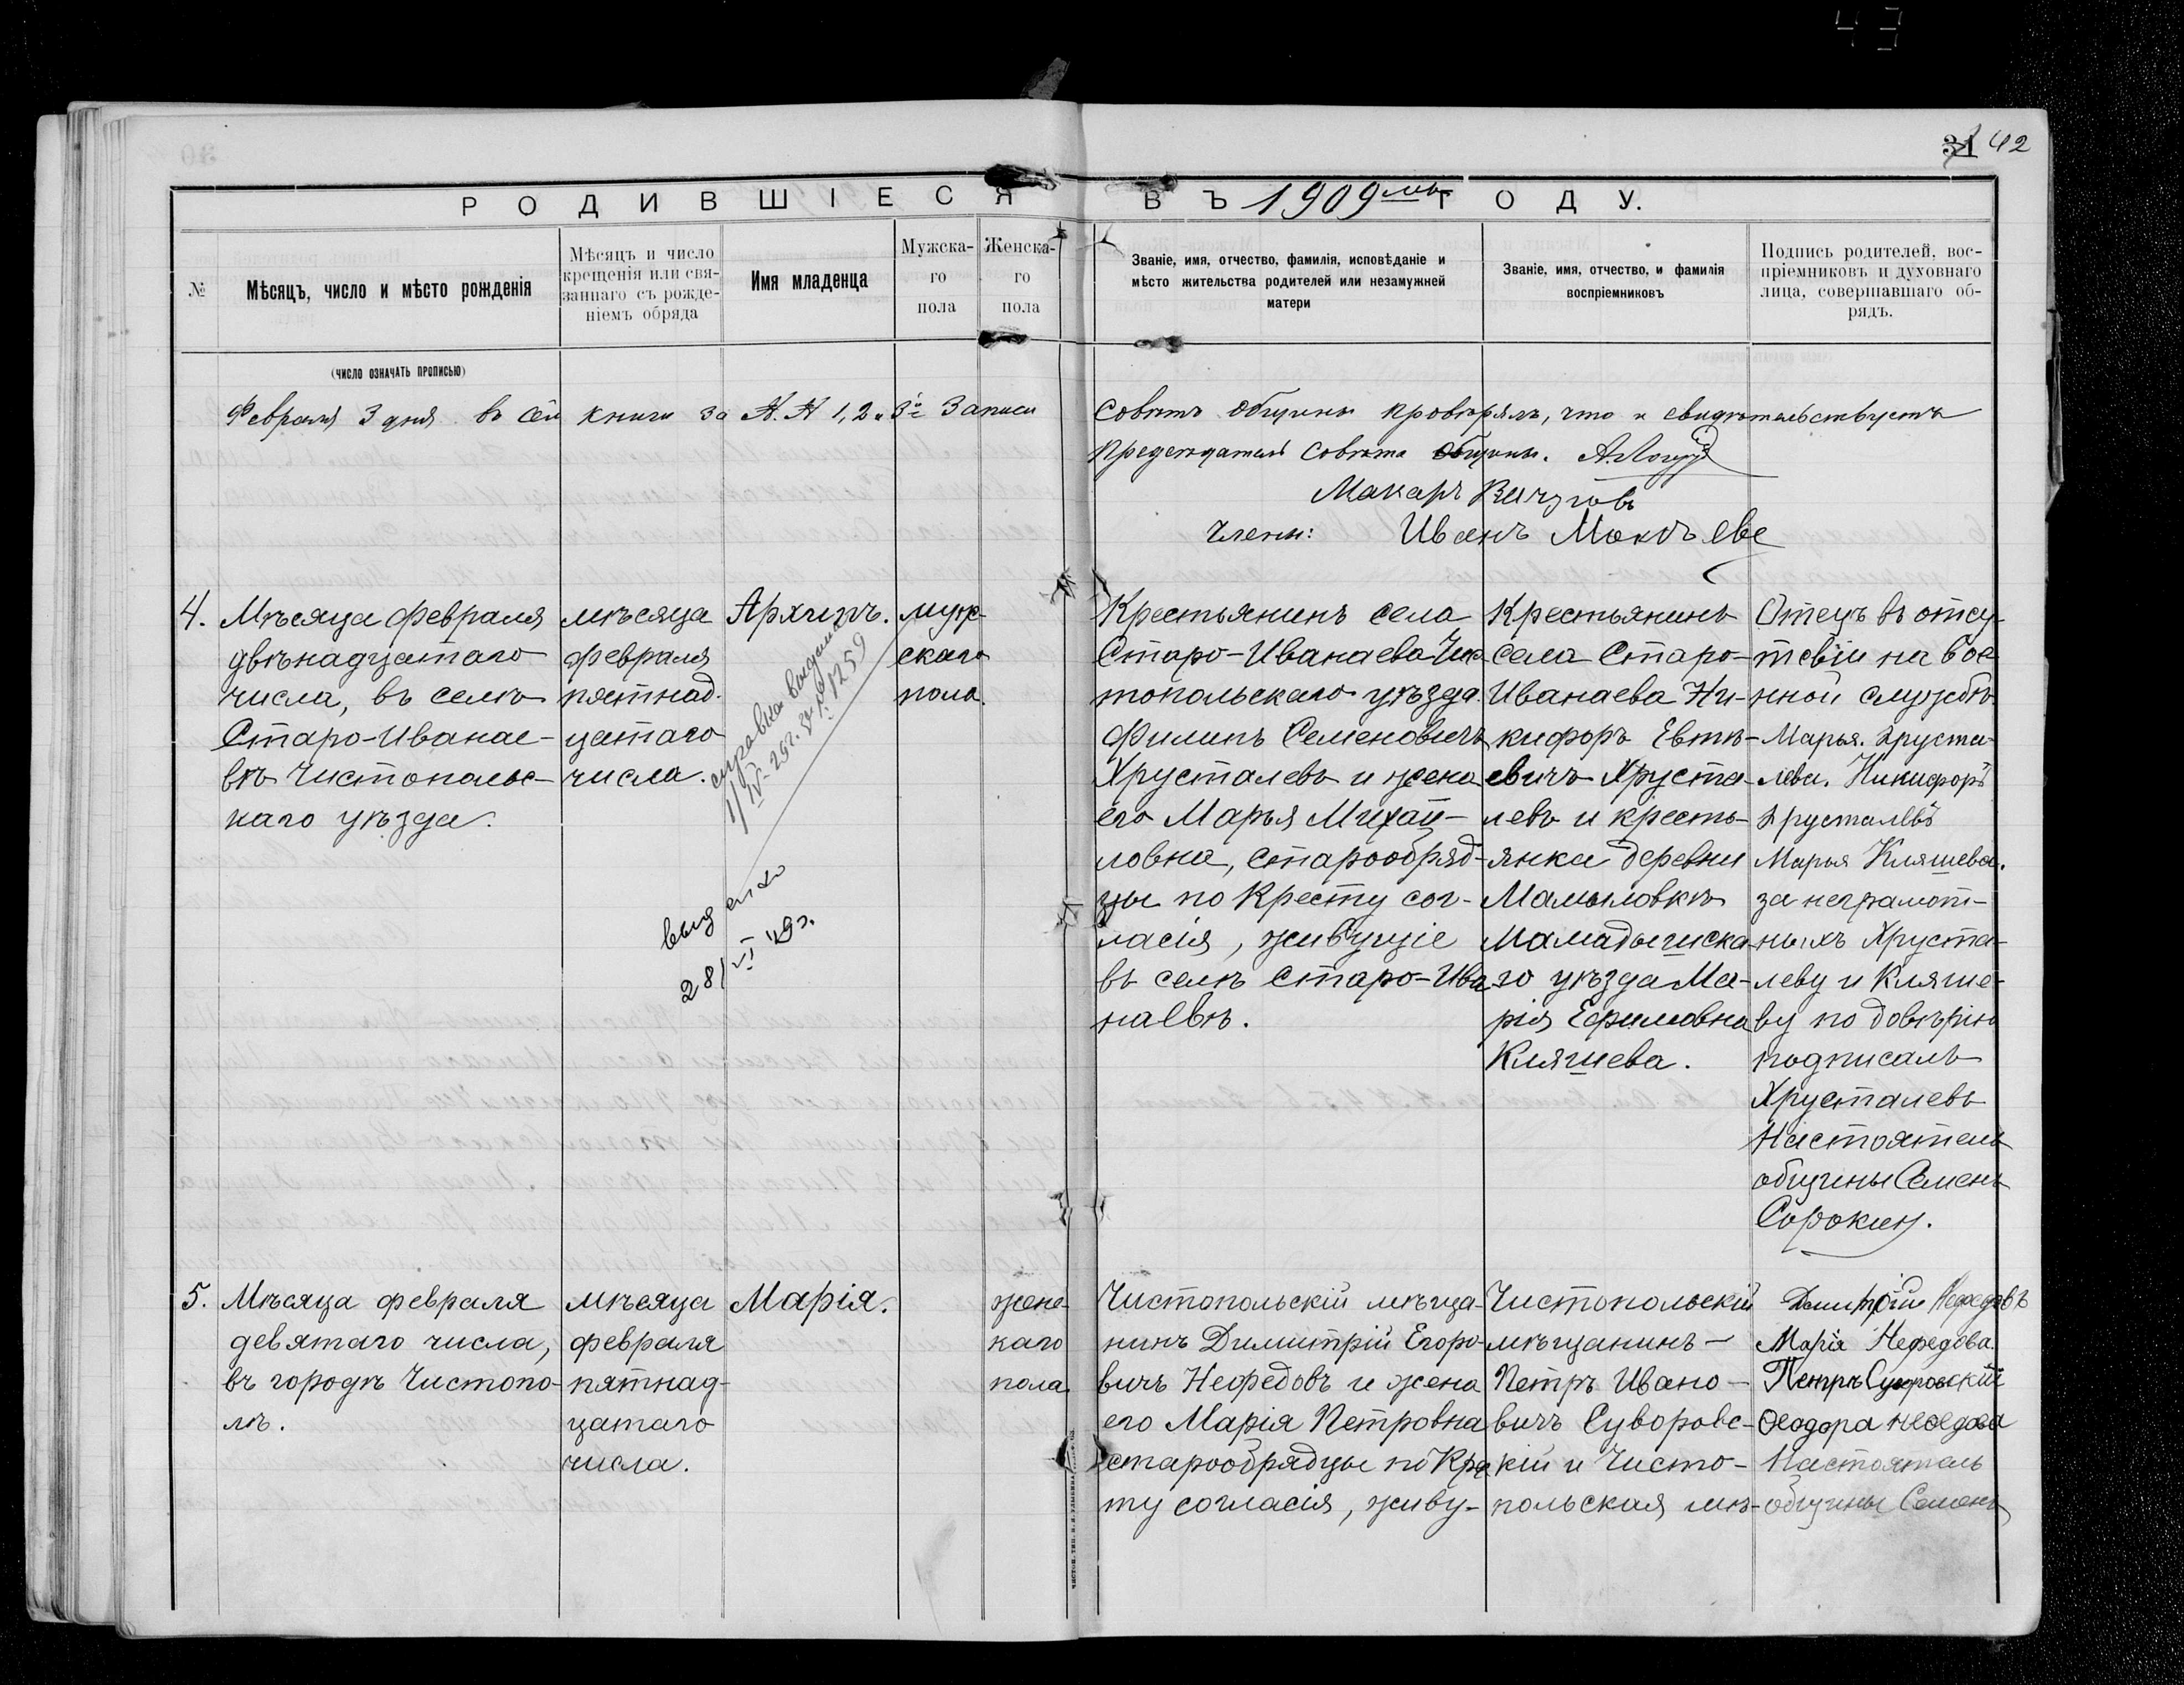 43
31 42
РОДИВШІЕСЯ ВЪ 1909мъ ГОДУ.
№
Мѣсяцъ, число и мѣсто рожденія
Мѣсяцъ и число
крещенія или свя-
заннаго съ рожде-
ніемъ обряда
Имя младенца
Мужска-
го
пола
Женска-
го
пола
Званіе, имя, отчество, фамилія, исповѣданіе и
мѣсто жительства родителей или незамужней
матери
Званіе, имя, отчество, и фамилія
воспріемниковъ
Подпись родителей, вос-
пріемниковъ и духовнаго
лица, совершавшаго об-
рядъ.
(ЧИСЛО ОЗНАЧАТЬ ПРОПИСЬЮ)
Февраля 3 дня въ сей книги за №.№ 1, 2 и 3й Записи Совѣтъ Общины провѣрялъ, что и свидѣтельствуетъ
Предсѣдатель Совѣта Общины.
Макаръ
Члены: Иванъ
4.
Мѣсяца февраля
двѣнадцатаго
числа, въ селѣ
Старо-Иванае-
вѣ Чистопольс-
каго уѣзда.
мѣсяца
февраля
пятнад.
цатаго
числа.
Архипъ.
справка выдана
11/IV-29г. за № 1259
выдано
28/VI 49г.
муж-
скаго
пола.
Крестьянинъ села
Старо-Иванаева Чис
топольскаго уѣзда
Филипъ Семеновичъ
Хрусталевъ и жена
его Марья Михай-
ловна, старообряд-
цы по Кресту сог-
ласія, живущіе
въ селѣ Старо-Ива
наевѣ.
Крестьянинъ
села Старо-
Иванаева Ни-
кифоръ Евтѣ-
евичъ Хруста-
левъ и кресть-
янка деревни
Мамыловкѣ
Мамадышска-
го уѣзда Ма-
рія Ефимовна
Кляшева.
Отецъ въ отсу-
тствіи на вое-
нной службѣ.
Марья. Хруста-
лева. Никифоръ
Хрусталевъ
Марья Кляшева.
за неграмот-
ныхъ Хруста-
леву и Кляше-
ву по довѣрію
подписалъ
Хрусталевъ
Настоятель
общины Семенъ
Сорокин.
5.
Мѣсяца февраля
девятаго числа,
въ городѣ Чистопо-
лѣ.
мѣсяца
февраля
пятнад-
цатаго
числа.
Марія.
женс-
каго
пола.
Чистопольскій мѣща-
нинъ Димитрій Егоро-
вичъ Нефедовъ и жена
его Марія Петровна
старообрядцы по Кре
ту согласія, живу-
Чистопольскій
мѣщанинъ-
Петръ Ивано-
вичъ Суворовс-
кій и Чисто-
польская мѣ-
Дмитрій Нефедовъ
Марія Нефедова.
Петръ Суворовскій
Ѳеодора Неѳедова
Настоятель
общины Семенъ